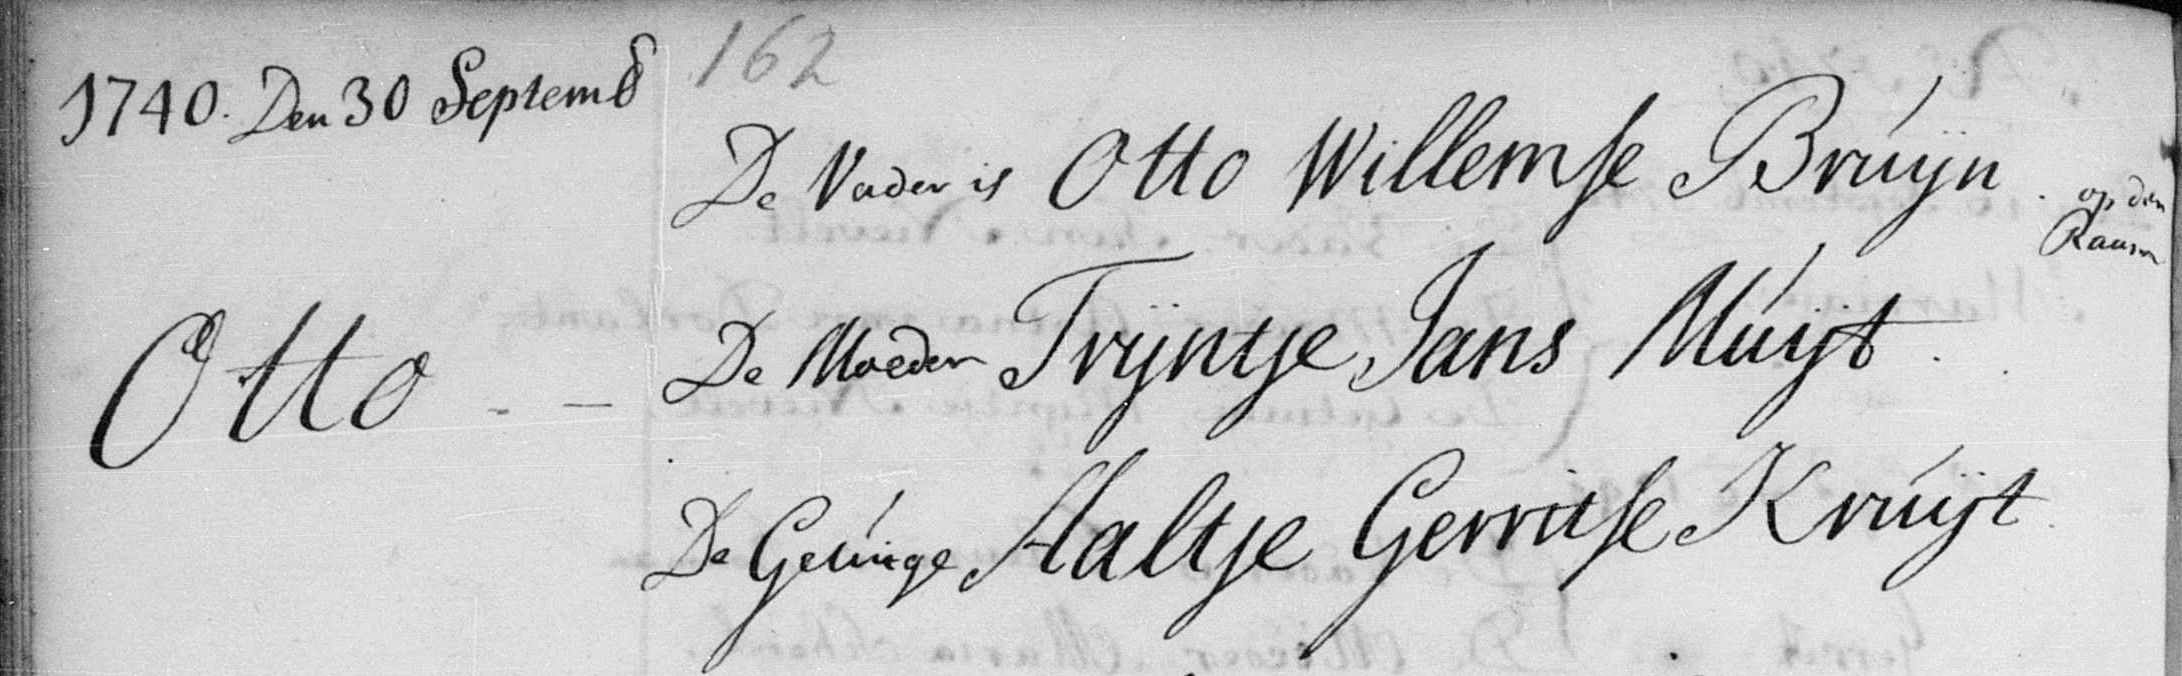 162
1740. Den 30 Septemb
De Vader is Otto Willemse Bruijn . op den
Raam
Otto - — De Moeder Trijntje Jans Muijt .
De Getuige Aaltje Gerritse Kruijt